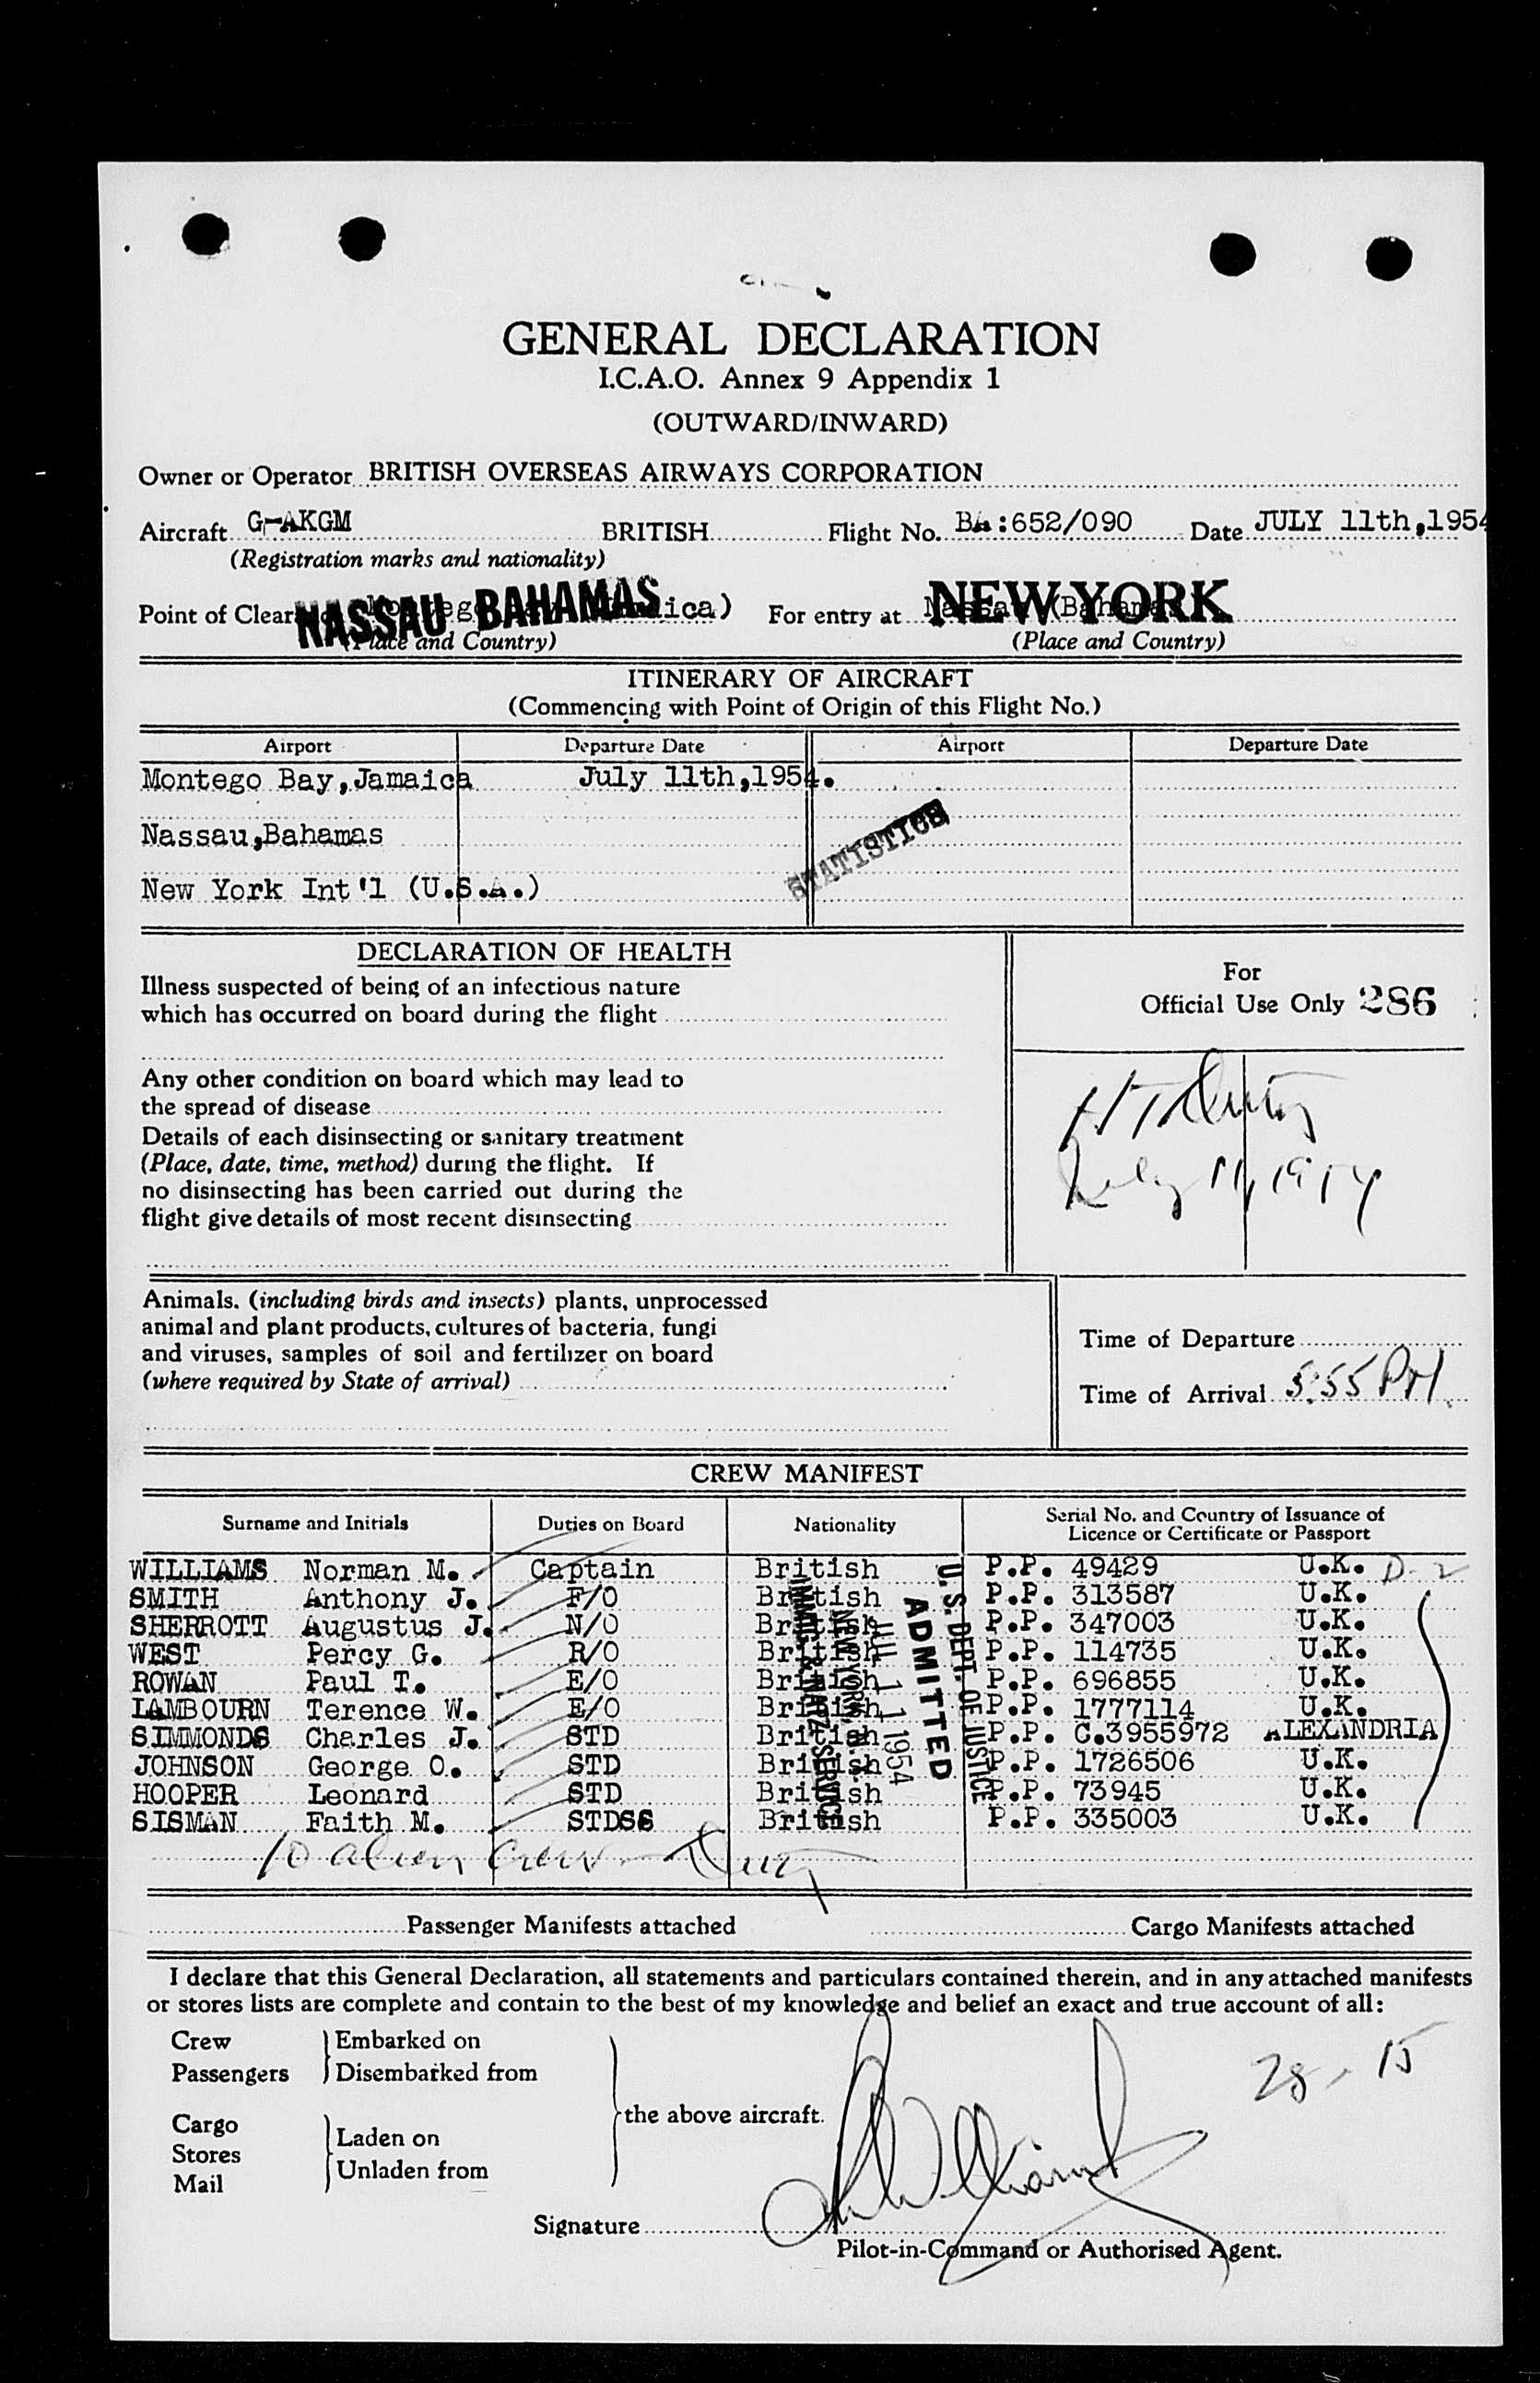 GENERAL DECLARATION
I.C.A.O. Annex 9 Appendix 1
(OUTWARD/INWARD)
Owner or Operator BRITISH OVERSEAS AIRWAYS CORPORATION
Aircraft G-AKGM BRITISH Flight No. BA:652/090 Date JULY 11th,1954
(Registration marks and nationality)
Point of Clear NASSAU BAHAMAS ica) For entry at NEW YORK
(Place and Country) (Place and Country)
ITINERARY OF AIRCRAFT
(Commencing with Point of Origin of this Flight No.)
Airport Departure Date Airport Departure Date
Montego Bay,Jamaica July 11th,1954.
Nassau,Bahamas
STATISTICS
New York Int'l (U.S.A.)
DECLARATION OF HEALTH
Illness suspected of being of an infectious nature
which has occurred on board during the flight
For
Official Use Only 286
Any other condition on board which may lead to
the spread of disease
Details of each disinsecting or sanitary treatment
(Place, date, time, method) during the flight. If
no disinsecting has been carried out during the
flight give details of most recent disinsecting
July 11, 1954
Animals. (including birds and insects) plants, unprocessed
animal and plant products, cultures of bacteria, fungi
and viruses, samples of soil and fertilizer on board
(where required by State of arrival)
Time of Departure
Time of Arrival 5:55 PM.
CREW MANIFEST
Surname and Initials Duties on Board Nationality Serial No. and Country of Issuance of
Licence or Certificate or Passport
WILLIAMS Norman M. Captain British P.P. 49429 U.K. D-2
SMITH Anthony J. F/O British P.P. 313587 U.K.
SHERROTT Augustus J. N/O British P.P. 347003 U.K.
WEST Percy G. R/O British P.P. 114735 U.K.
ROWAN Paul T. E/O British P.P. 696855 U.K.
LAMBOURN Terence W. E/O British P.P. 1777114 U.K.
SIMMONDS Charles J. STD British P.P. C.3955972 ALEXANDRIA
JOHNSON George O. STD British P.P. 1726506 U.K.
HOOPER Leonard STD British P.P. 73945 U.K.
SISMAN Faith M. STDSS British P.P. 335003 U.K.
U.S. DEPT. OF JUSTICE
ADMITTED
JUL 11 1954
NEW YORK, N.Y.
IMMIG. & NATZ. SERVICE
10 alien crew
Passenger Manifests attached Cargo Manifests attached
I declare that this General Declaration, all statements and particulars contained therein, and in any attached manifests
or stores lists are complete and contain to the best of my knowledge and belief an exact and true account of all:
Crew Embarked on
Passengers Disembarked from
28 - 15
the above aircraft.
Cargo
Stores
Mail
Laden on
Unladen from
Signature Williams
Pilot-in-Command or Authorised Agent.